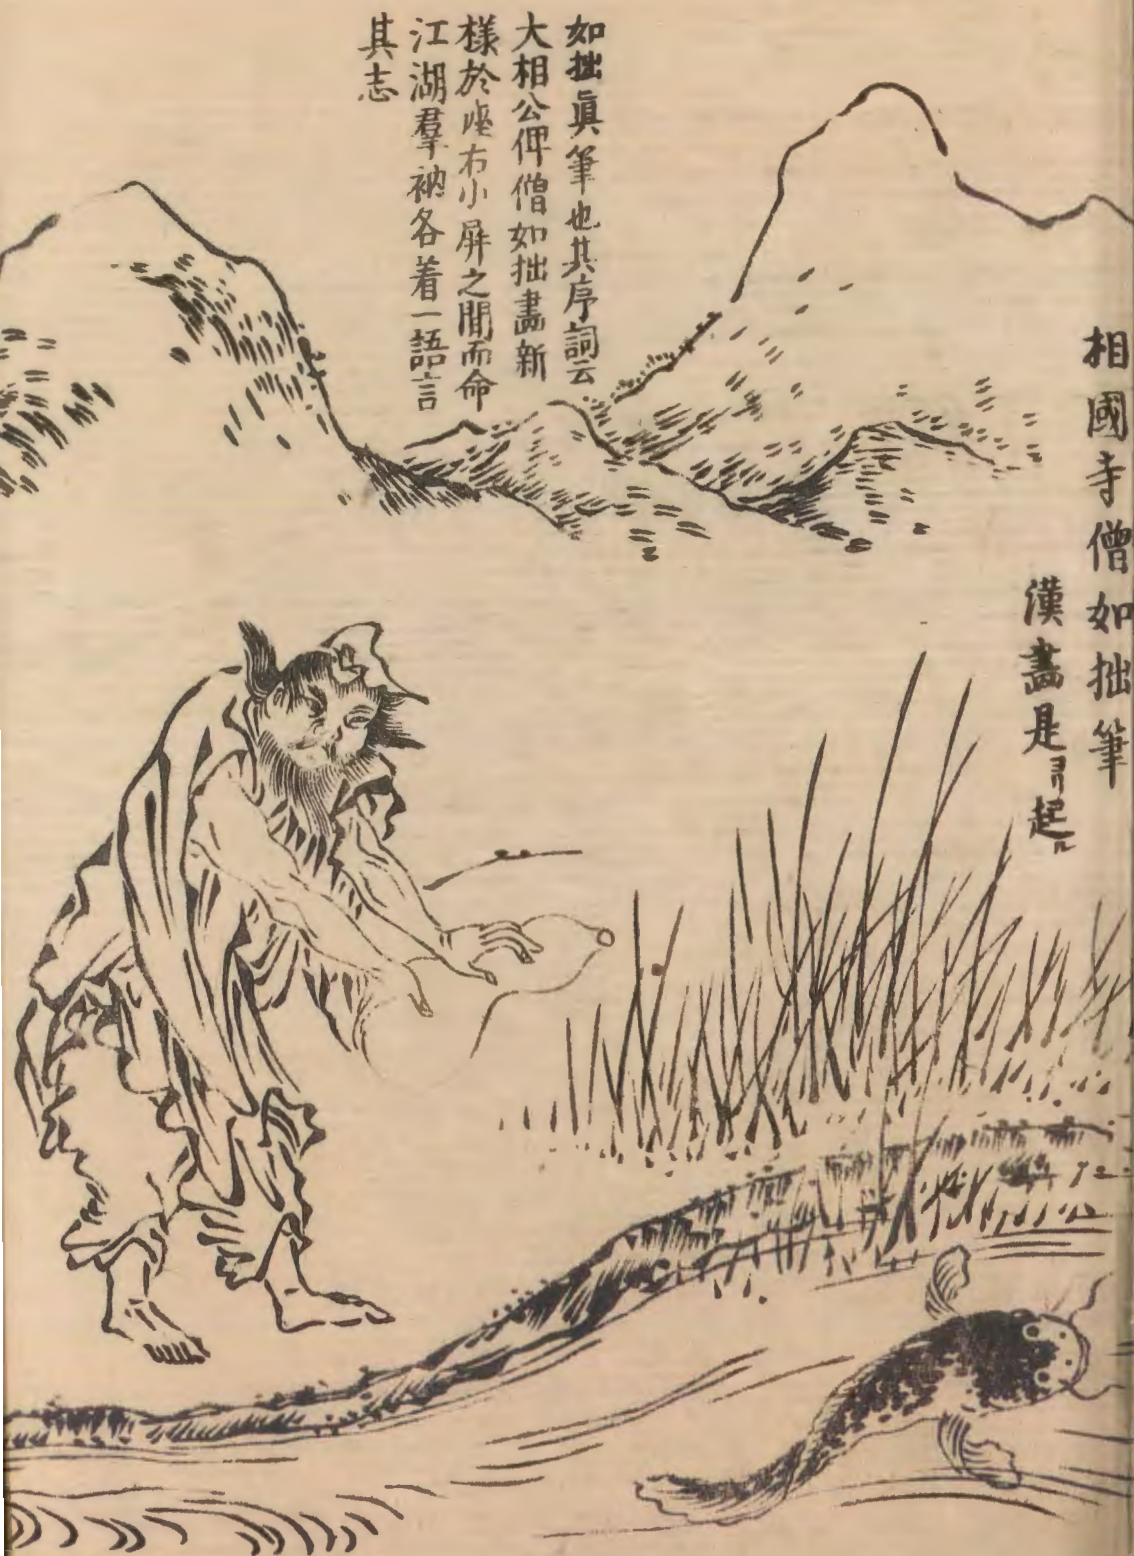 相國寺僧如拙筆
漢畫是ヨリ起ル
如拙眞筆也其序詞云
大相公俾僧如拙畵新
様於座右小屏之間而命
江湖羣衲各着一語言
其志